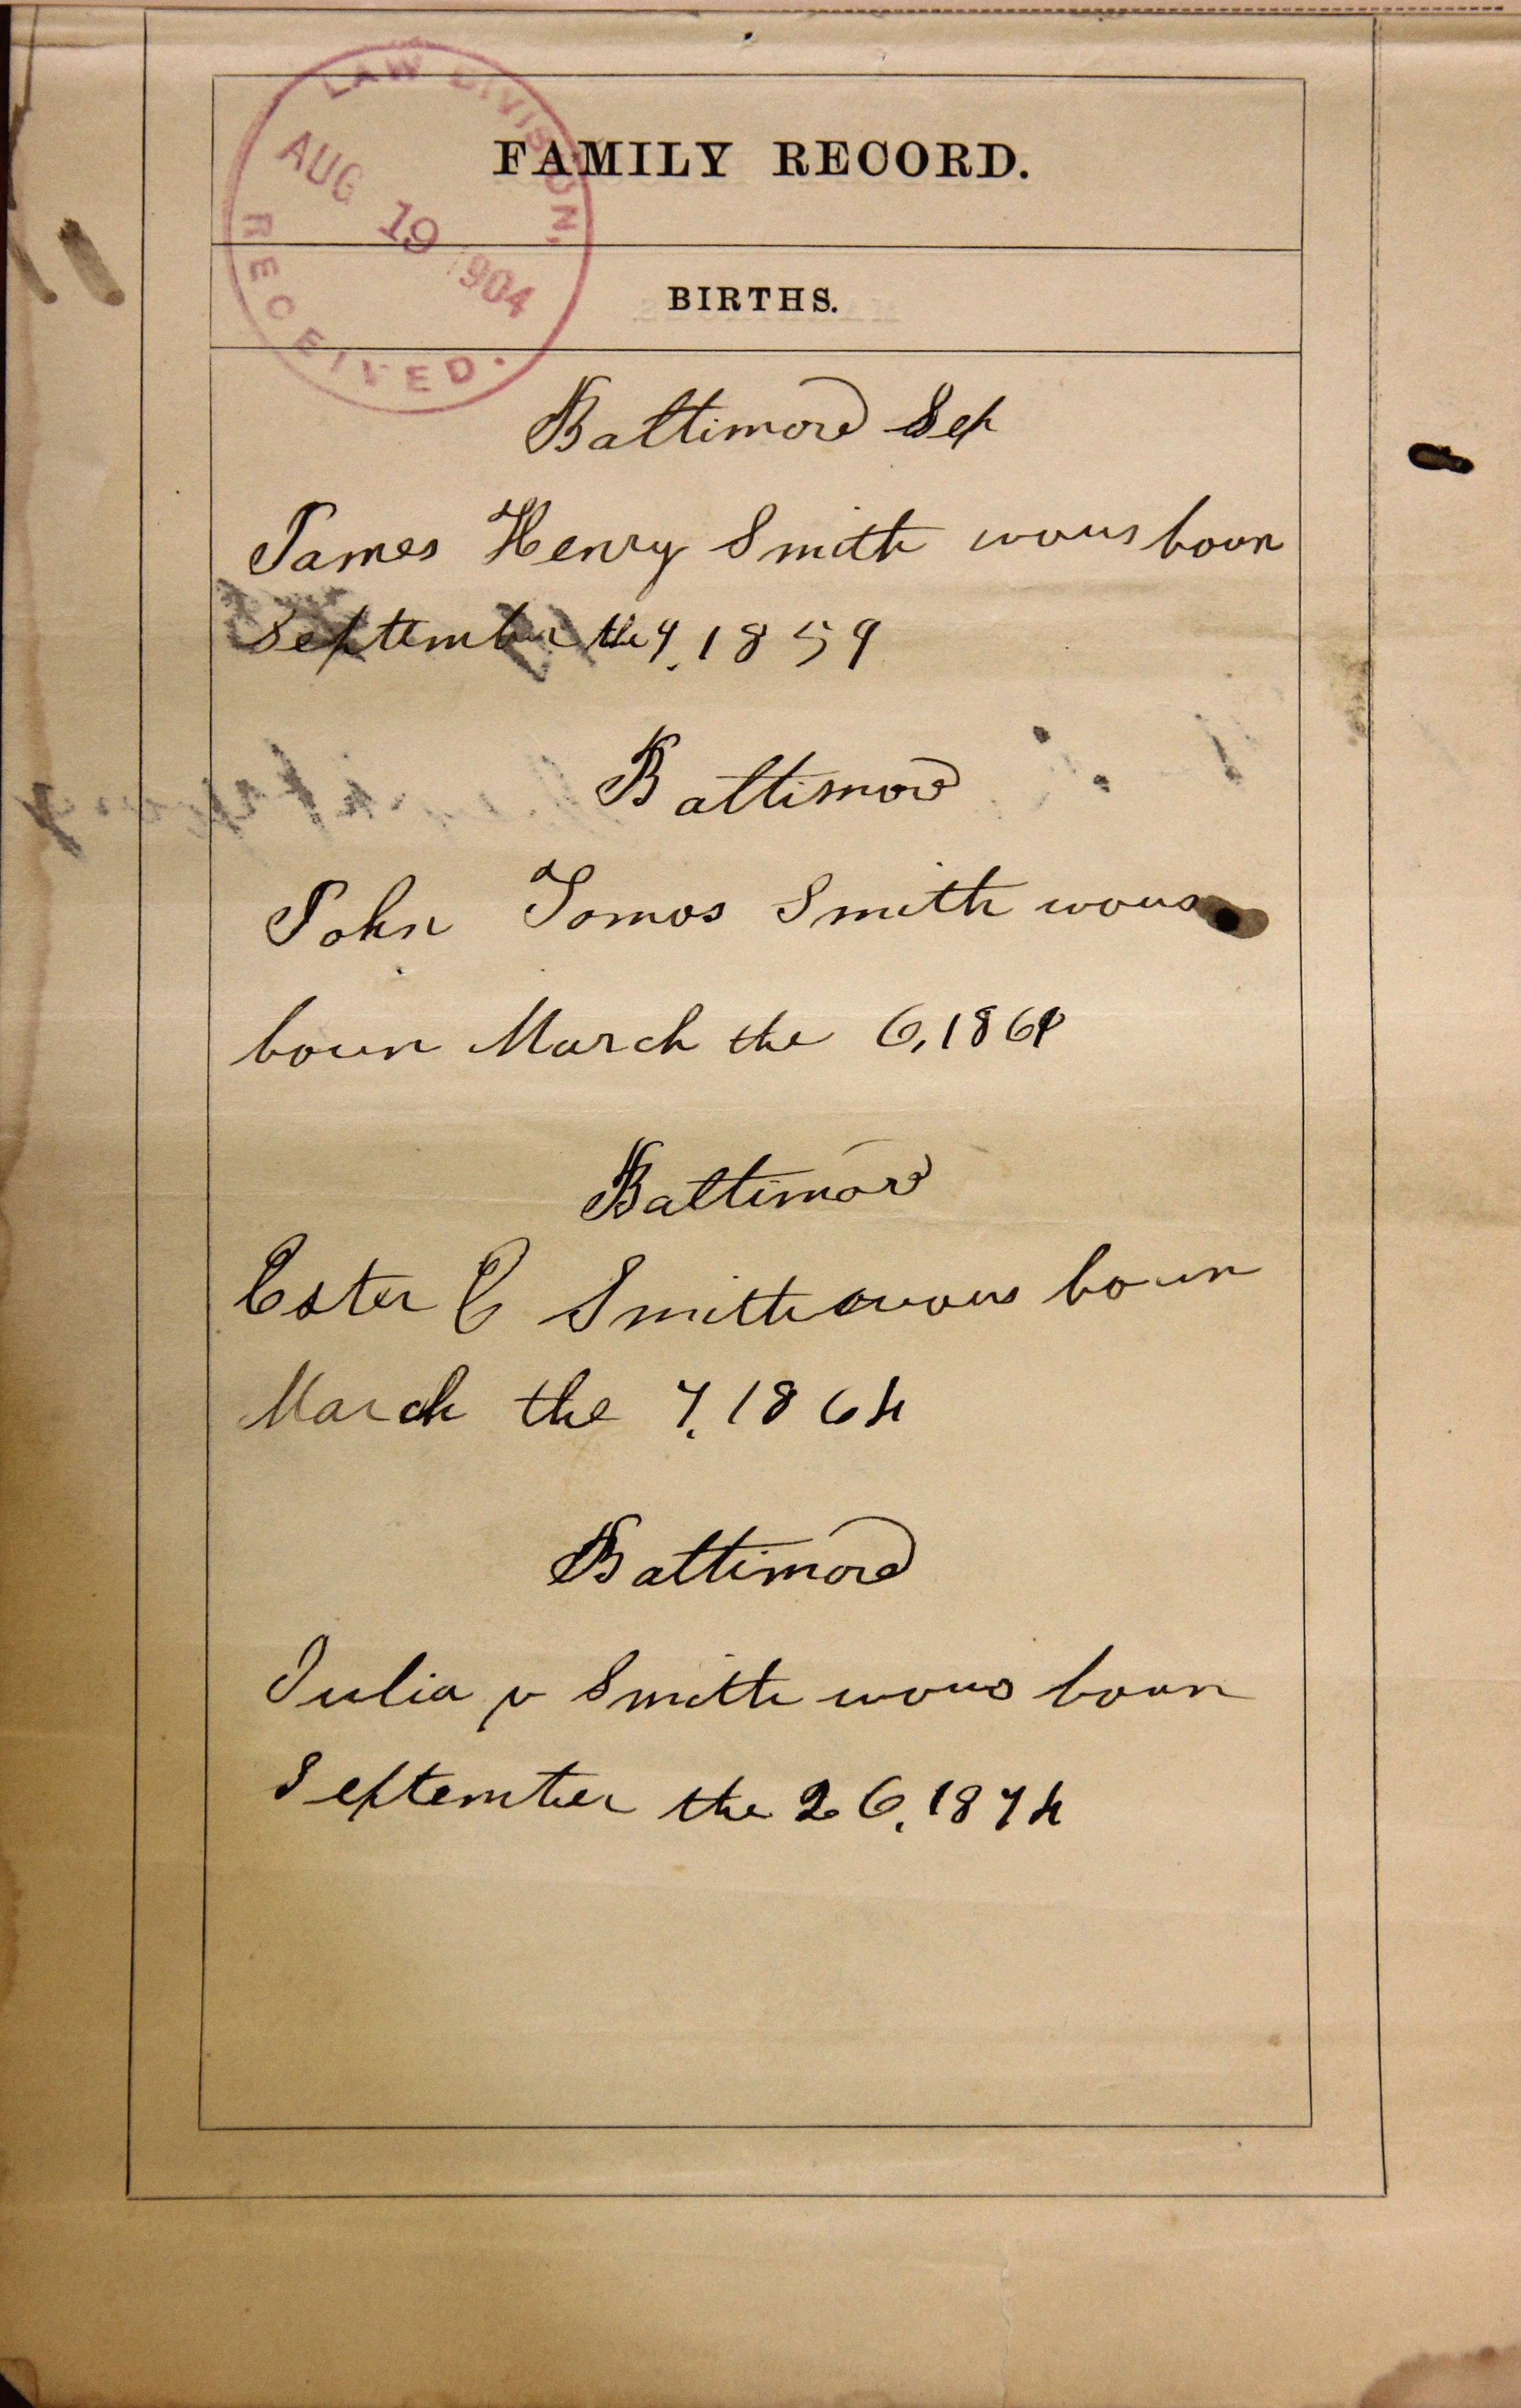 LAW DIVISION,
AUG 19 1904
RECEIVED.
FAMILY RECORD.
BIRTHS.
Baltimore Sep
James Henry Smith wous boun
September the 9, 1859
Baltimore
John Tomos Smith wous
boun March the 6, 186
Baltimore
Ester C Smith wous boun
March the 7, 1864
Baltimore
Julia v Smith wous boun
September the 26, 1874